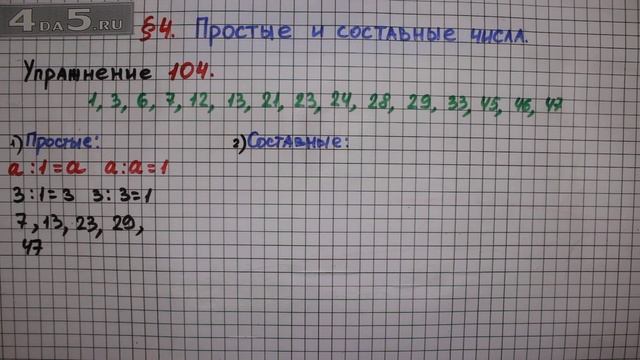 4DA5.RU
§4. Простые и составные числа.
Упражнение 104.
1, 3, 6, 7, 12, 13, 21, 23, 24, 28, 29, 33, 45, 46, 47
1) Простые:
a : 1 = a a : a = 1
3 : 1 = 3 3 : 3 = 1
7, 13, 23, 29,
47
2) Составные: